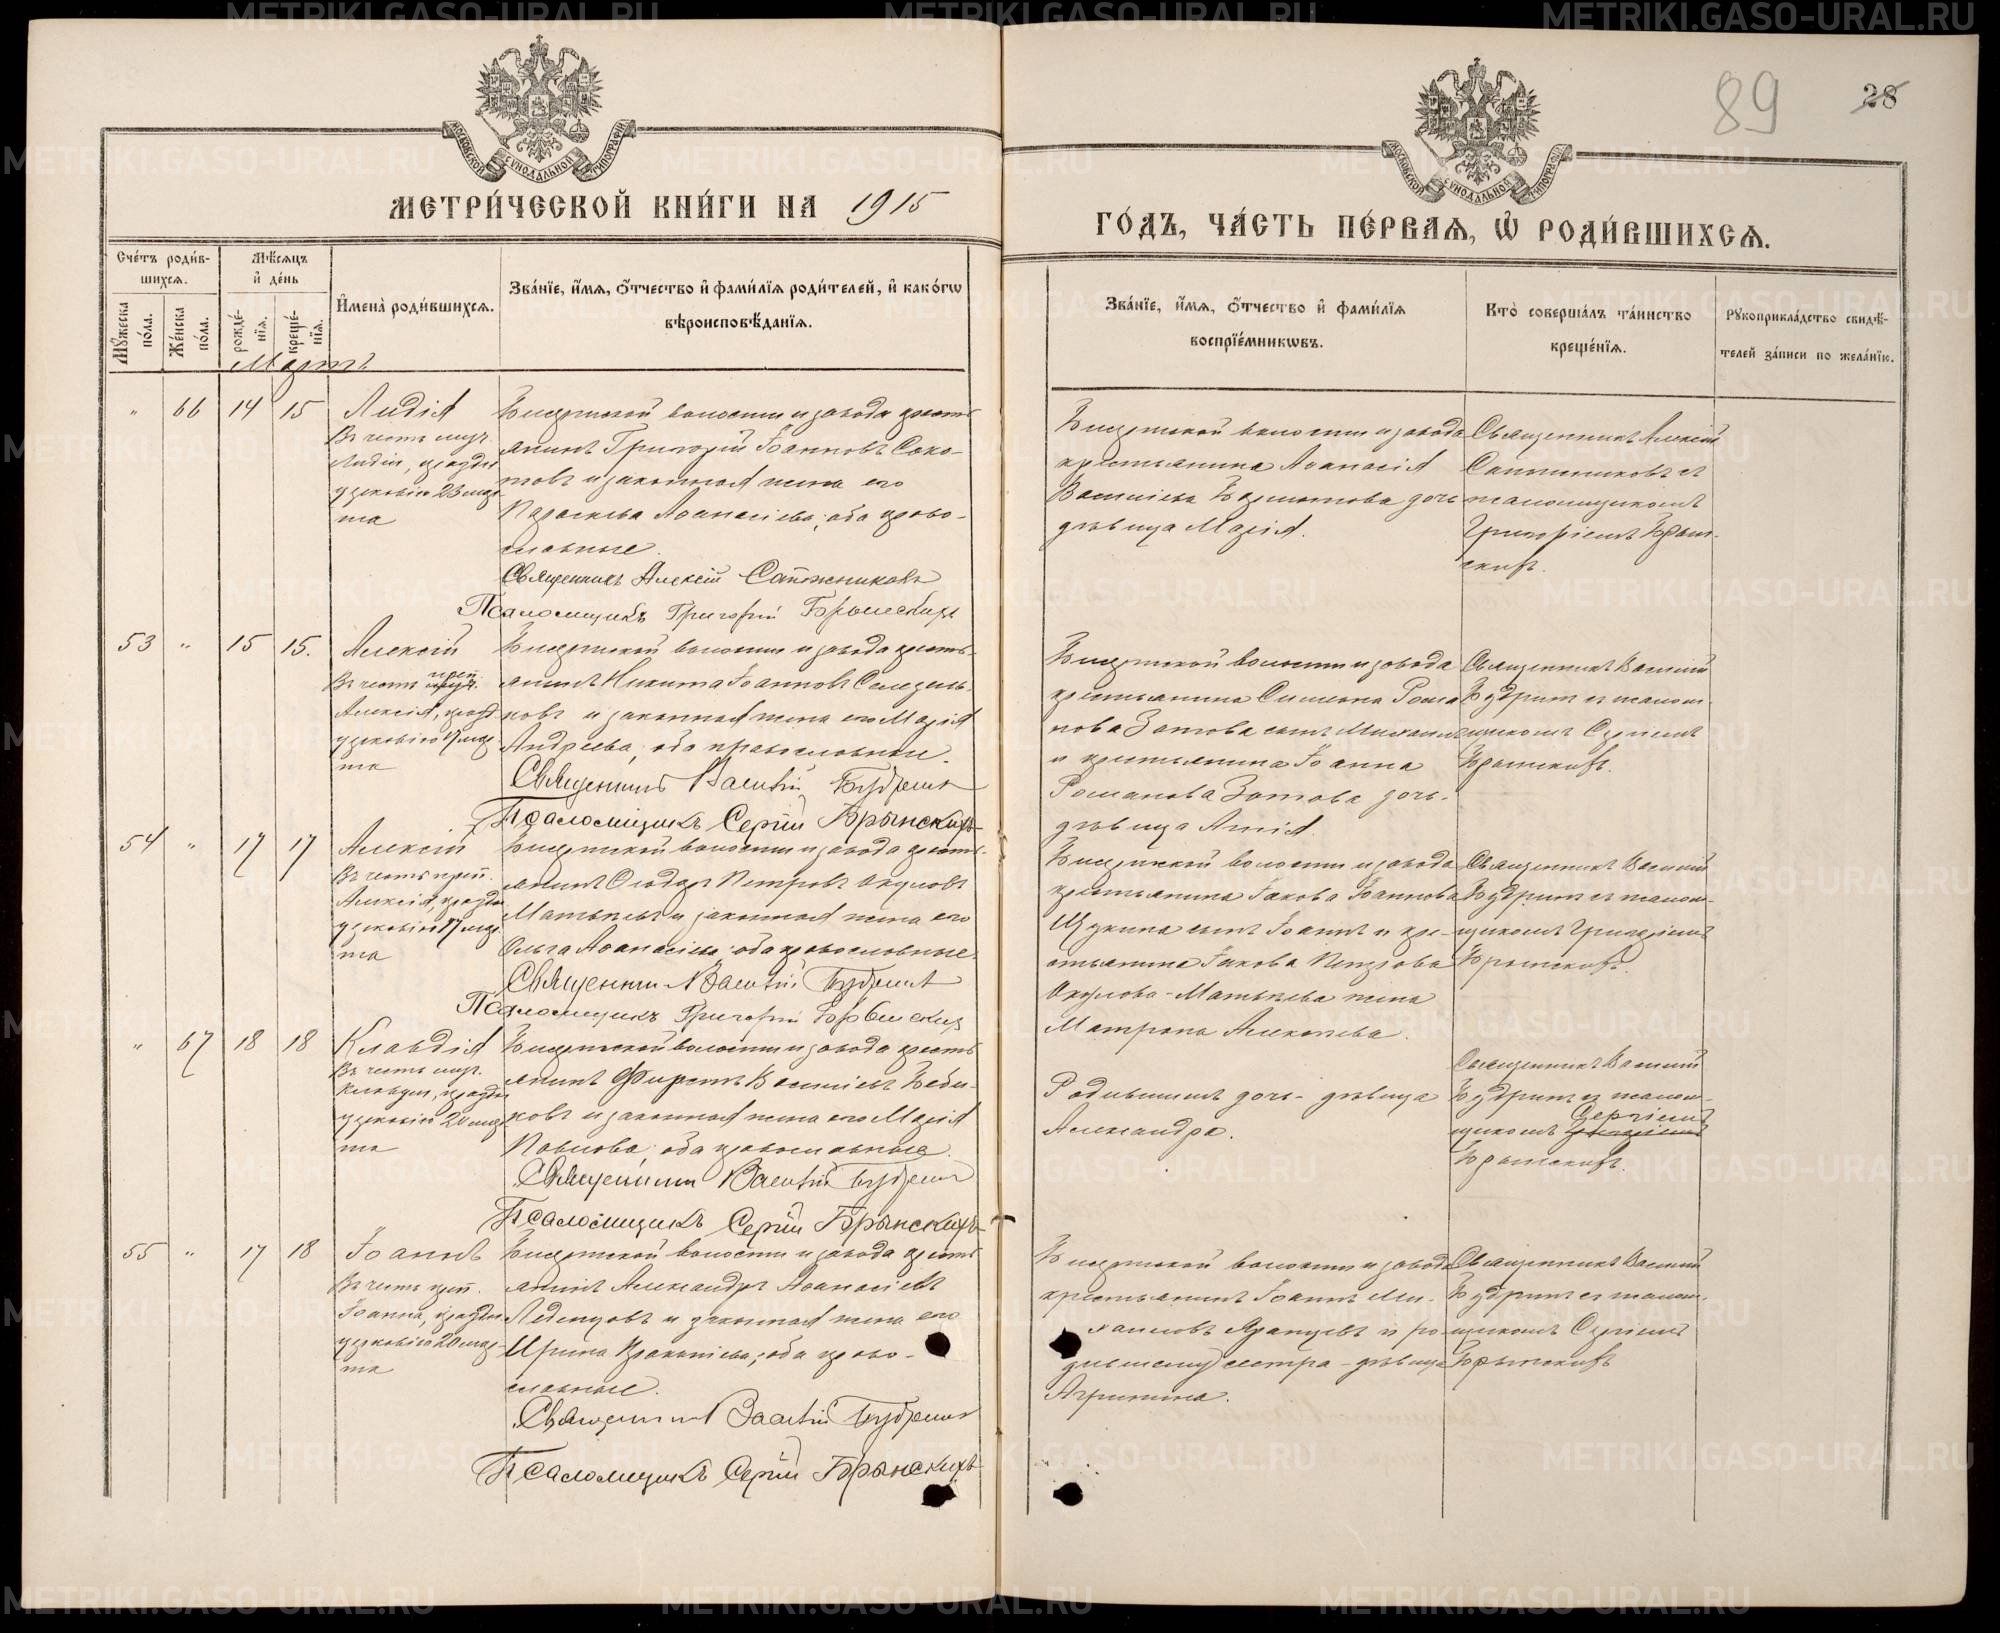 МЕТРИ́ЧЕСКОЙ КНИ́ГИ НА 1915
ГО́ДЪ, ЧА́СТЬ ПЕ́РВАѦ, Ѿ РОДИ́ВШИХСѦ.
89
28
Сче́тъ роди́в-
шихсѧ.
Мѣ́сѧцъ
и҆ де́нь
Мꙋ́жеска по́ла.
Же́нска по́ла.
рожде́-
нїѧ.
креще́-
нїѧ.
И҆мена̀ роди́вшихсѧ.
Зва́нїе, и҆́мѧ, ѻ҆́тчество и҆ фами́лїѧ роди́телей, и҆ како́гѡ
вѣроисповѣ́данїѧ.
Зва́нїе, и҆́мѧ, ѻ҆́тчество и҆ фами́лїѧ
воспрїе́мникѡвъ.
Кто̀ соверша́лъ та́инство
креще́нїѧ.
Рꙋкоприкла́дство свидѣ́-
телей за́писи по жела́нїю.
Мартъ
" 66 14 15 Лидія
Въ честь муч.
Лидіи, празд.
церковію 23 мар-
та
Бисертской волости и завода кресть-
янинъ Григорій Іоанновъ Соко-
ловъ и законная жена его
Параскева Аѳанасіева, оба право-
славные.
Священникъ Алексій Сапожниковъ
Псаломщикъ Григорій Брынскихъ
Бисертской волости и завода
крестьянина Аѳанасія
Василіева дочь
дѣвица Марія.
Священникъ Алексій
Сапожниковъ съ
псаломщикомъ
Григоріемъ Брын-
скихъ.
53 " 15 15. Алексій
Въ честь преп.
Алексія, празд.
церковію 17 мар-
та
Бисертской волости и завода кресть-
янинъ Никита Іоанновъ Селезень-
ковъ и законная жена его Марія
Андреева, оба православные.
Священникъ Василій Будринъ
Псаломщикъ Сергій Брынскихъ
Бисертской волости и завода
крестьянина Симеона Рома-
нова Зотова сынъ Михаилъ
и крестьянина Іоанна
Романова Зотова дочь-
дѣвица Анна.
Священникъ Василій
Будринъ съ псалом-
щикомъ Сергіемъ
Брынскихъ.
54 " 17 17 Алексій
Въ честь преп.
Алексія, празд.
церковію 17 мар-
та
Бисертской волости и завода кресть-
янинъ Ѳеодоръ Петровъ Окуловъ
Матвѣевъ и законная жена его
Ольга Аѳанасіева, оба православные.
Священникъ Василій Будринъ
Псаломщикъ Григорій Брынскихъ
Бисертской волости и завода
крестьянина Іакова Іоаннова
Щукина сынъ Іоаннъ и кре-
стьянина Іакова Петрова
Окулова-Матвѣева жена
Матрона Алексѣева.
Священникъ Василій
Будринъ съ псалом-
щикомъ Григоріемъ
Брынскихъ.
" 67 18 18 Клавдія
Въ честь муч.
Клавдіи, празд.
церковію 20 мар-
та
Бисертской волости и завода кресть-
янинъ Фирсъ Василіевъ Баби-
ковъ и законная жена его Марія
Павлова, оба православные.
Священникъ Василій Будринъ
Псаломщикъ Сергій Брынскихъ
Родившихъ дочь-дѣвица
Александра.
Священникъ Василій
Будринъ съ псалом-
Сергіемъ
щикомъ Григоріемъ
Брынскихъ.
55 " 17 18 Іоаннъ
Въ честь преп.
Іоанна, празд.
церковію 20 мар-
та
Бисертской волости и завода кресть-
янинъ Александръ Аѳанасіевъ
Леденцовъ и законная жена его
Ирина Прокопіева, оба право-
славные.
Священникъ Василій Будринъ
Псаломщикъ Сергій Брынскихъ
Бисертской волости и завода
крестьянинъ Іоаннъ Ми-
хаиловъ Яранцевъ и ро-
дившему сестра-дѣвица
Агрипина.
Священникъ Василій
Будринъ съ псалом-
щикомъ Сергіемъ
Брынскихъ
METRIKI.GASO-URAL.RU